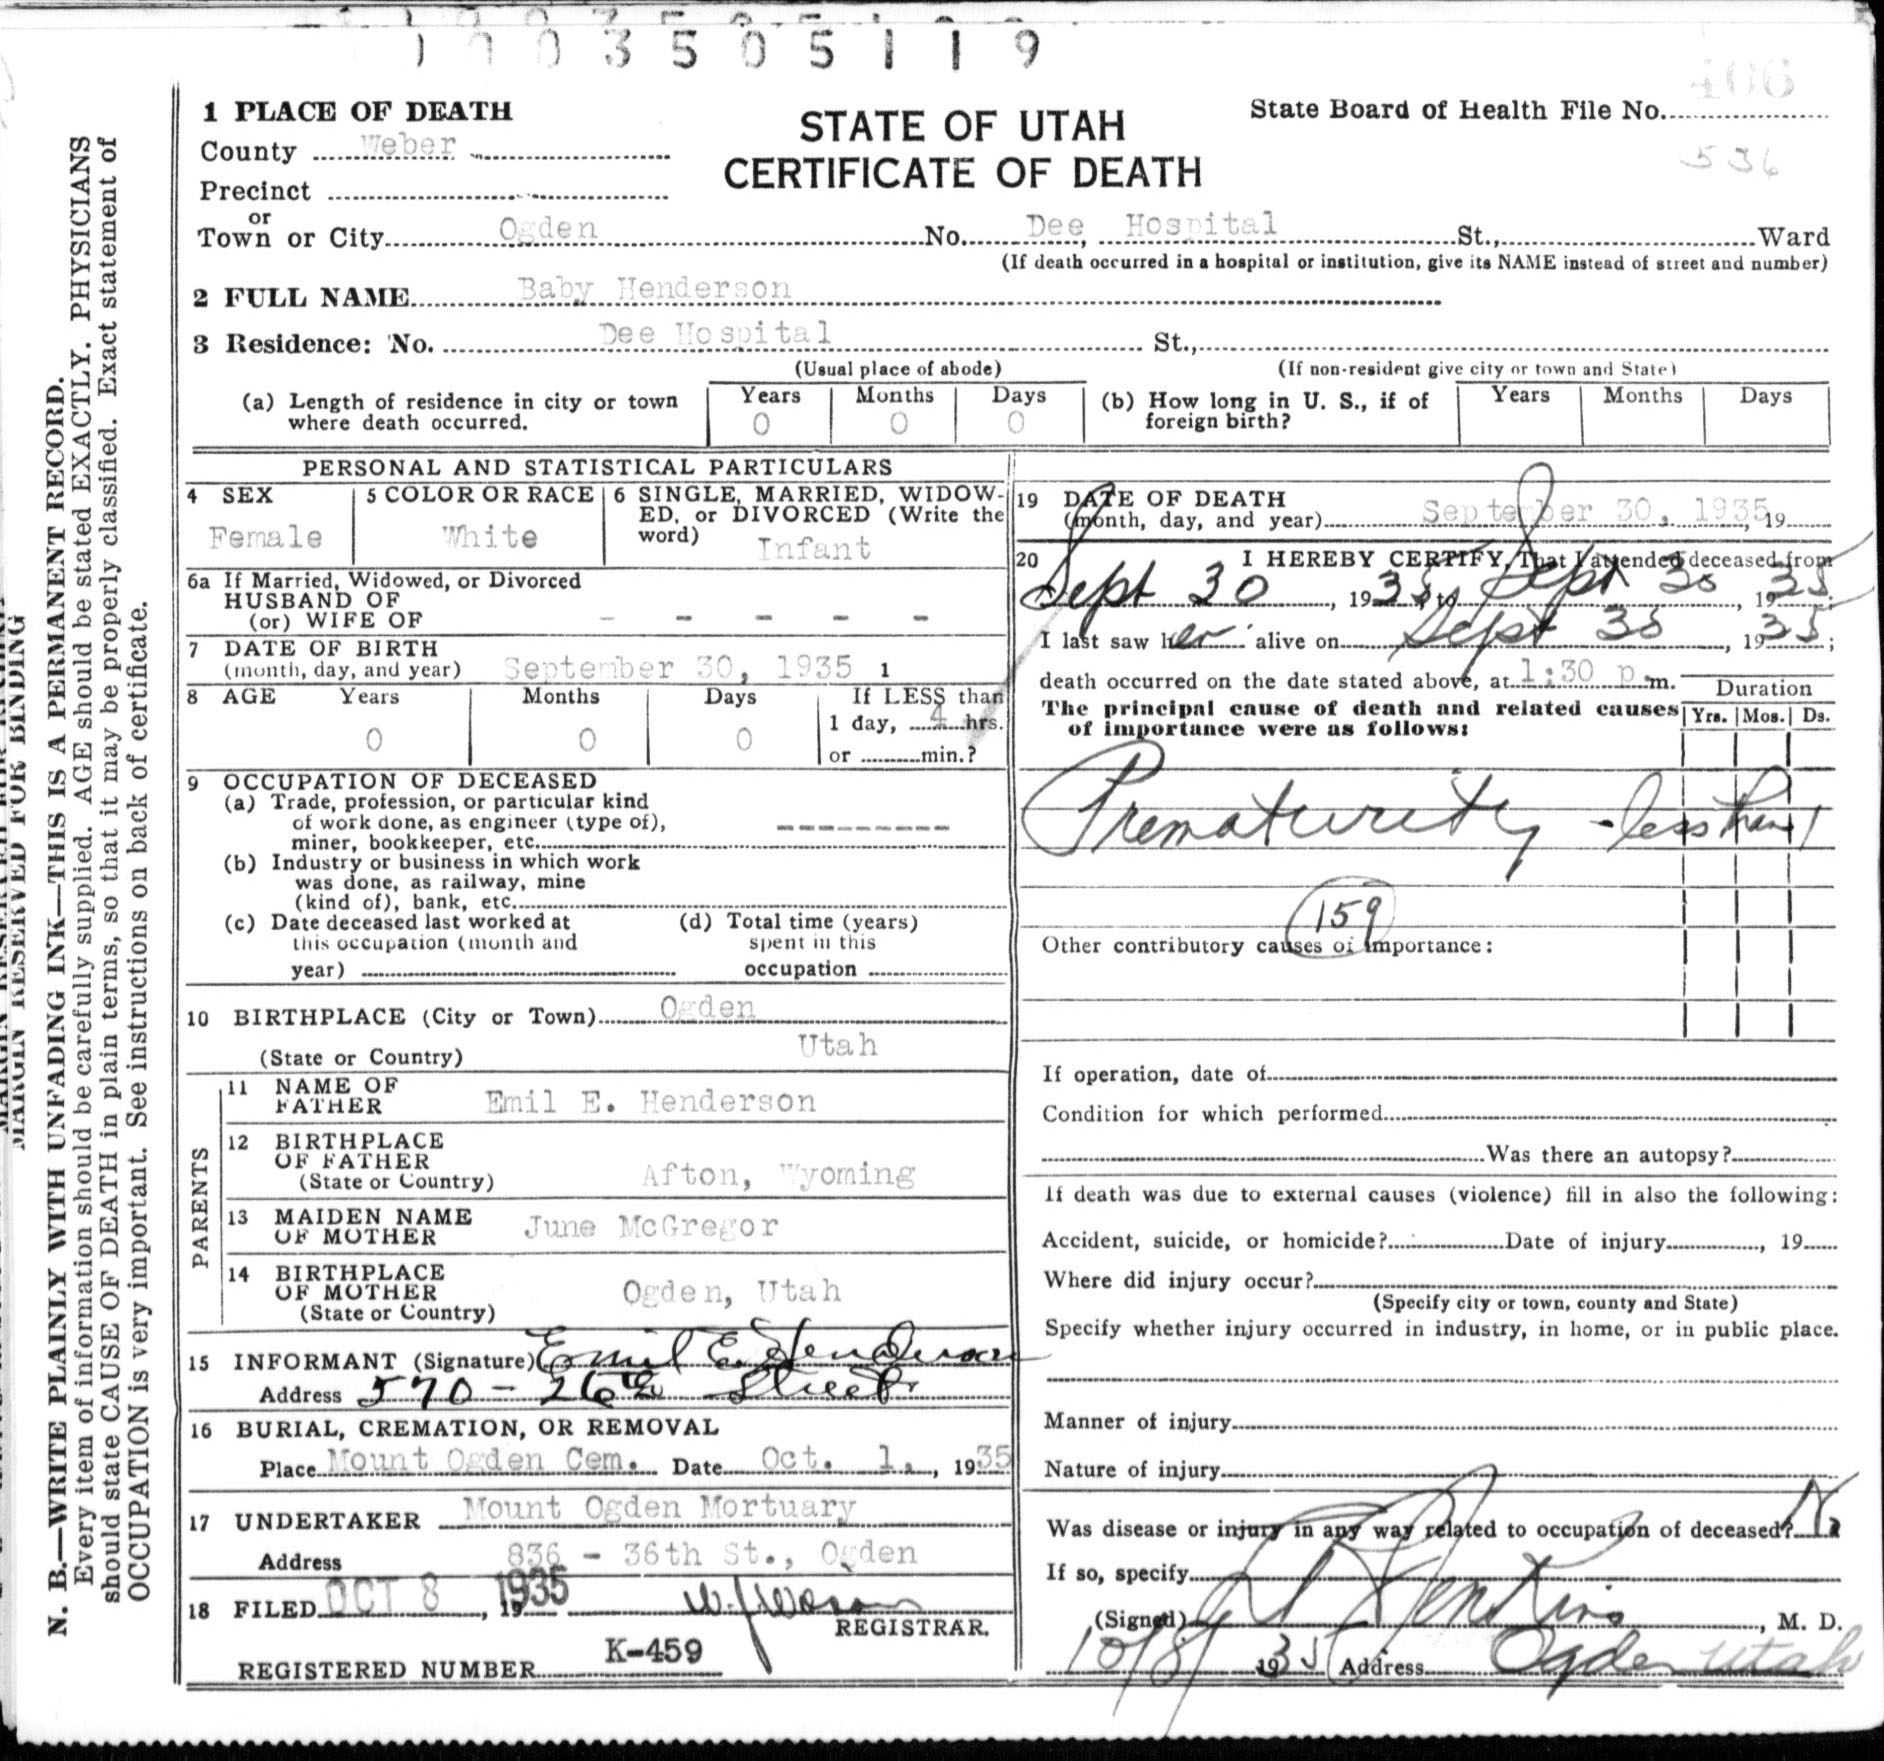 1003505119
1 PLACE OF DEATH
STATE OF UTAH
CERTIFICATE OF DEATH
State Board of Health File No. 406
536
County Weber
Precinct
or
Town or City Ogden No. Dee Hospital St., Ward
(If death occurred in a hospital or institution, give its NAME instead of street and number)
2 FULL NAME Baby Henderson
3 Residence: No. Dee Hospital St.,
(Usual place of abode) (If non-resident give city or town and State)
(a) Length of residence in city or town where death occurred. Years 0 Months 0 Days 0
(b) How long in U. S., if of foreign birth? Years Months Days
PERSONAL AND STATISTICAL PARTICULARS
4 SEX Female
5 COLOR OR RACE White
6 SINGLE, MARRIED, WIDOW-
ED, or DIVORCED (Write the
word) Infant
6a If Married, Widowed, or Divorced
HUSBAND OF
(or) WIFE OF - - - - -
7 DATE OF BIRTH
(month, day, and year) September 30, 1935 1
8 AGE Years Months Days If LESS than
0 0 0 1 day, 4 hrs.
or min.?
9 OCCUPATION OF DECEASED
(a) Trade, profession, or particular kind
of work done, as engineer (type of),
miner, bookkeeper, etc. -------
(b) Industry or business in which work
was done, as railway, mine
(kind of), bank, etc.
(c) Date deceased last worked at
this occupation (month and
year)
(d) Total time (years)
spent in this
occupation
10 BIRTHPLACE (City or Town) Ogden
(State or Country) Utah
PARENTS
11 NAME OF
FATHER Emil E. Henderson
12 BIRTHPLACE
OF FATHER
(State or Country) Afton, Wyoming
13 MAIDEN NAME
OF MOTHER June McGregor
14 BIRTHPLACE
OF MOTHER
(State or Country) Ogden, Utah
15 INFORMANT (Signature) Emil E. Henderson
Address 570 - 26th Street
16 BURIAL, CREMATION, OR REMOVAL
Place Mount Ogden Cem. Date Oct. 1, 1935
17 UNDERTAKER Mount Ogden Mortuary
Address 836 - 36th St., Ogden
18 FILED OCT 8, 1935
REGISTRAR.
REGISTERED NUMBER K-459
19 DATE OF DEATH
(month, day, and year) September 30, 1935, 19
20 I HEREBY CERTIFY, That I attended deceased from
Sept 30, 1935, to Sept 30, 1935;
I last saw her alive on Sept 30, 1935;
death occurred on the date stated above, at 1:30 p.m.
The principal cause of death and related causes
of importance were as follows:
Duration
Yrs. Mos. Ds.
Prematurity - less than 1
159
Other contributory causes of importance:
If operation, date of
Condition for which performed
Was there an autopsy?
If death was due to external causes (violence) fill in also the following:
Accident, suicide, or homicide? Date of injury, 19
Where did injury occur?
(Specify city or town, county and State)
Specify whether injury occurred in industry, in home, or in public place.
Manner of injury
Nature of injury
Was disease or injury in any way related to occupation of deceased? No
If so, specify
(Signed) Jenkins, M. D.
10/8/ 1935 Address Ogden Utah
MARGIN RESERVED FOR BINDING
N. B.—WRITE PLAINLY WITH UNFADING INK—THIS IS A PERMANENT RECORD.
Every item of information should be carefully supplied. AGE should be stated EXACTLY. PHYSICIANS
should state CAUSE OF DEATH in plain terms, so that it may be properly classified. Exact statement of
OCCUPATION is very important. See instructions on back of certificate.